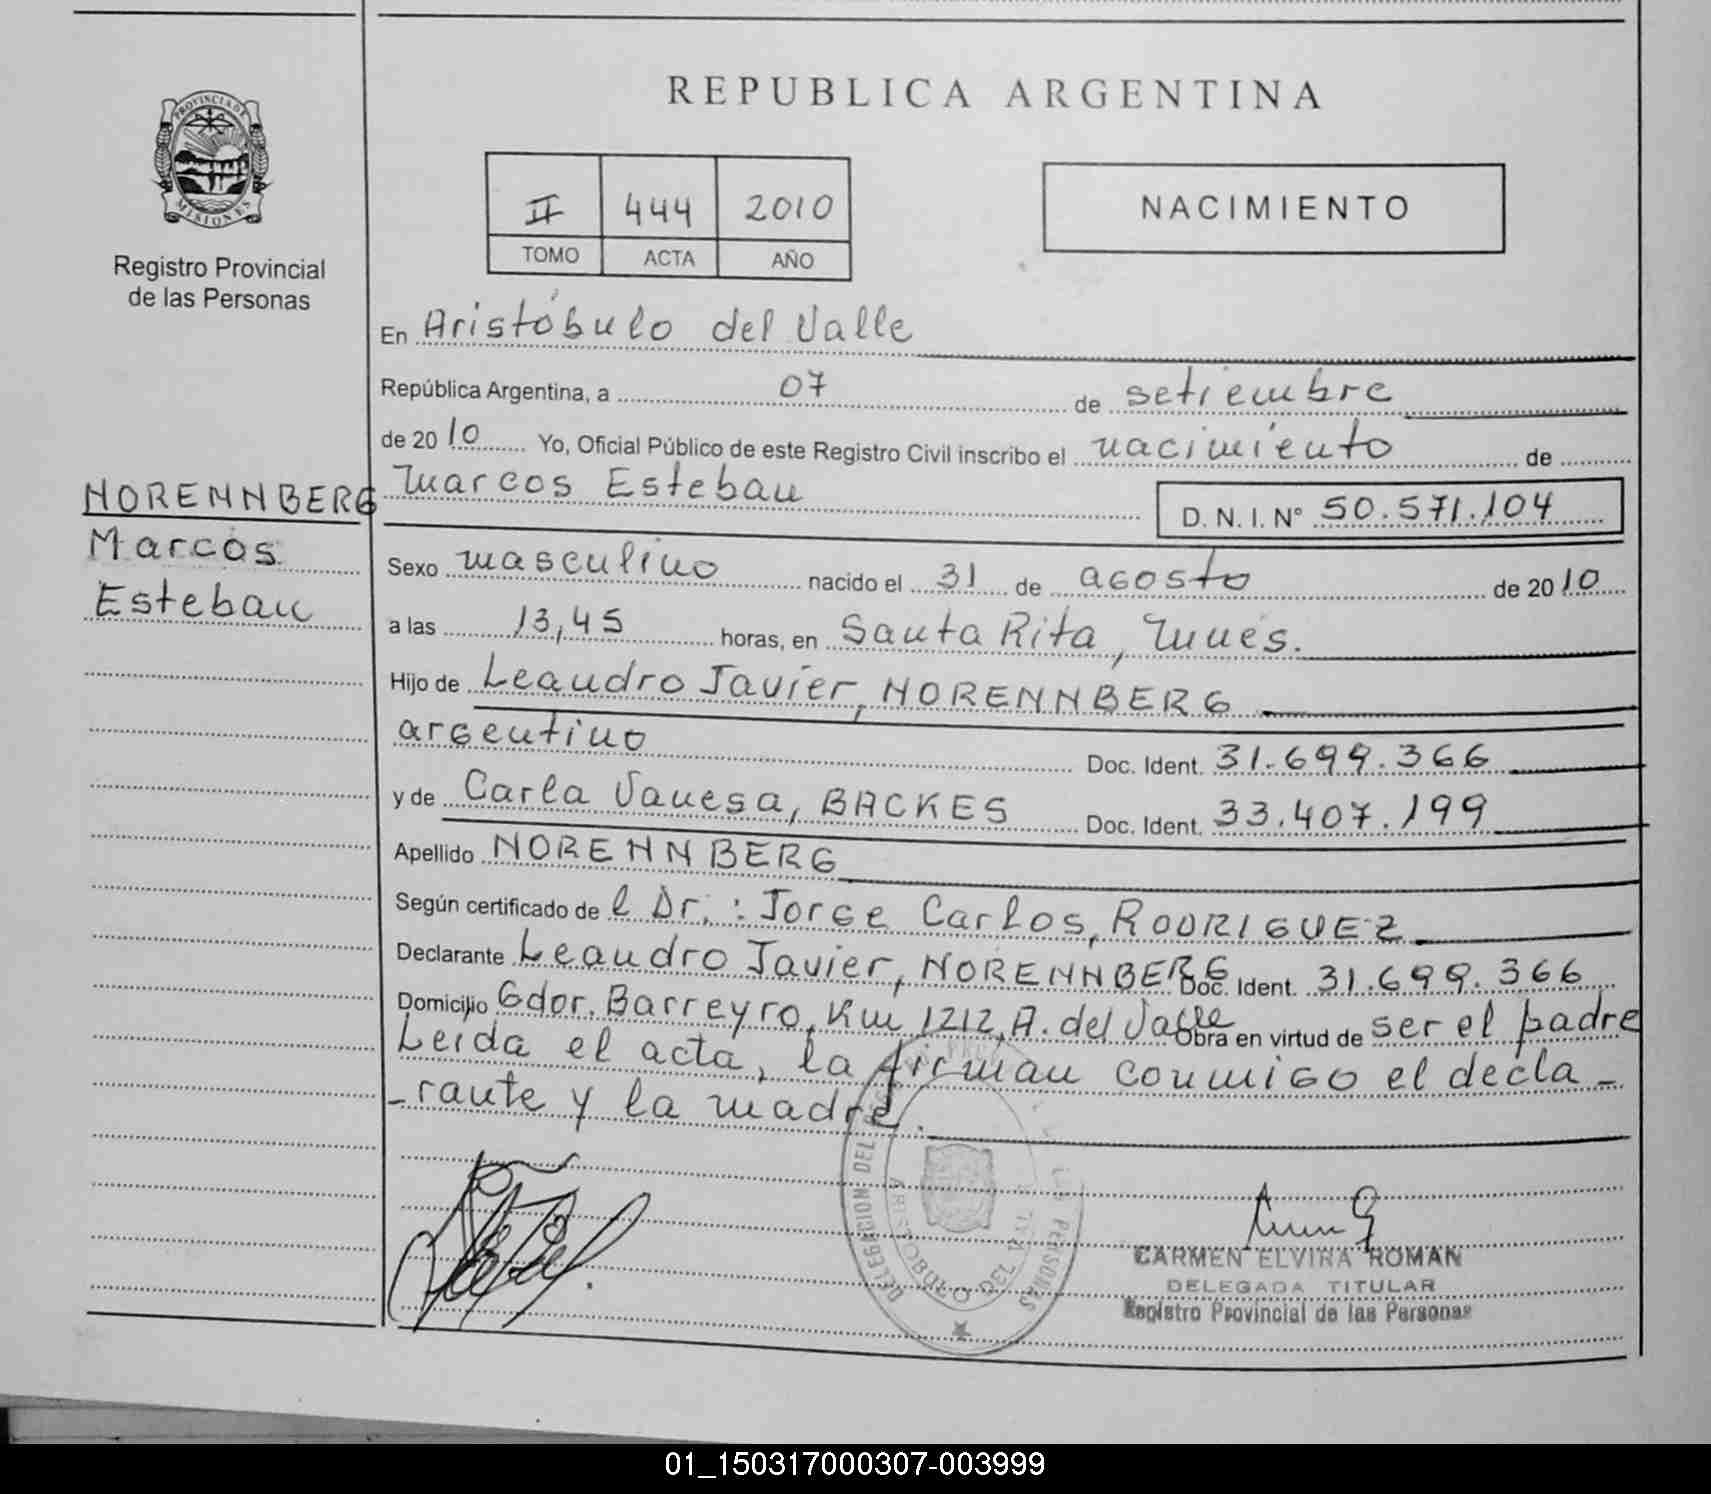 REPUBLICA ARGENTINA
PROVINCIA DE
MISIONES
Registro Provincial
de las Personas
II 444 2010
TOMO ACTA AÑO
NACIMIENTO
En Aristóbulo del Valle
República Argentina, a 07 de setiembre
de 2010 Yo, Oficial Público de este Registro Civil inscribo el nacimiento de
Marcos Esteban
D. N. I. Nº 50.571.104
NORENNBERG
Marcos
Esteban
Sexo masculino nacido el 31 de agosto de 2010
a las 13,45 horas, en Santa Rita, Mnes.
Hijo de Leandro Javier, NORENNBERG
argentino Doc. Ident. 31.699.366
y de Carla Vanesa, BACKES Doc. Ident. 33.407.199
Apellido NORENNBERG
Según certificado de l Dr.: Jorge Carlos, RODRIGUEZ
Declarante Leandro Javier, NORENNBERG Doc. Ident. 31.699.366
Domicilio Gdor. Barreyro, Km 1212, A. del Valle Obra en virtud de ser el padre
Leida el acta, la firman conmigo el decla-
-rante y la madre.
DELEGACION DEL LAS PERSONAS
ARISTOBULO DEL VALLE
CARMEN ELVIRA ROMAN
DELEGADA TITULAR
Registro Provincial de las Personas
01_150317000307-003999